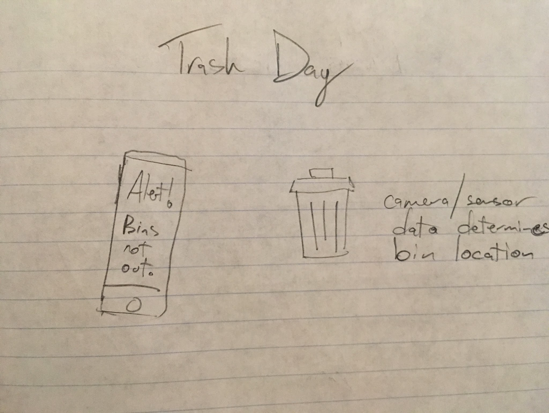 Trash Day
Alert!
Bins
not
out.
camera/sensor
data determines
bin location